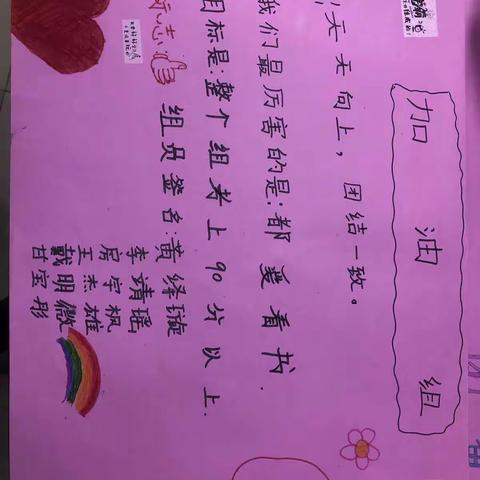 加油组
天天向上，团结一致。
我们最厉害的是:都爱看书.
目标是:整个组考上90分以上.
标志
组员签名:黄绎璇
李靖瑶
房宇枫
王杰雄
戴明微
甘宝彤